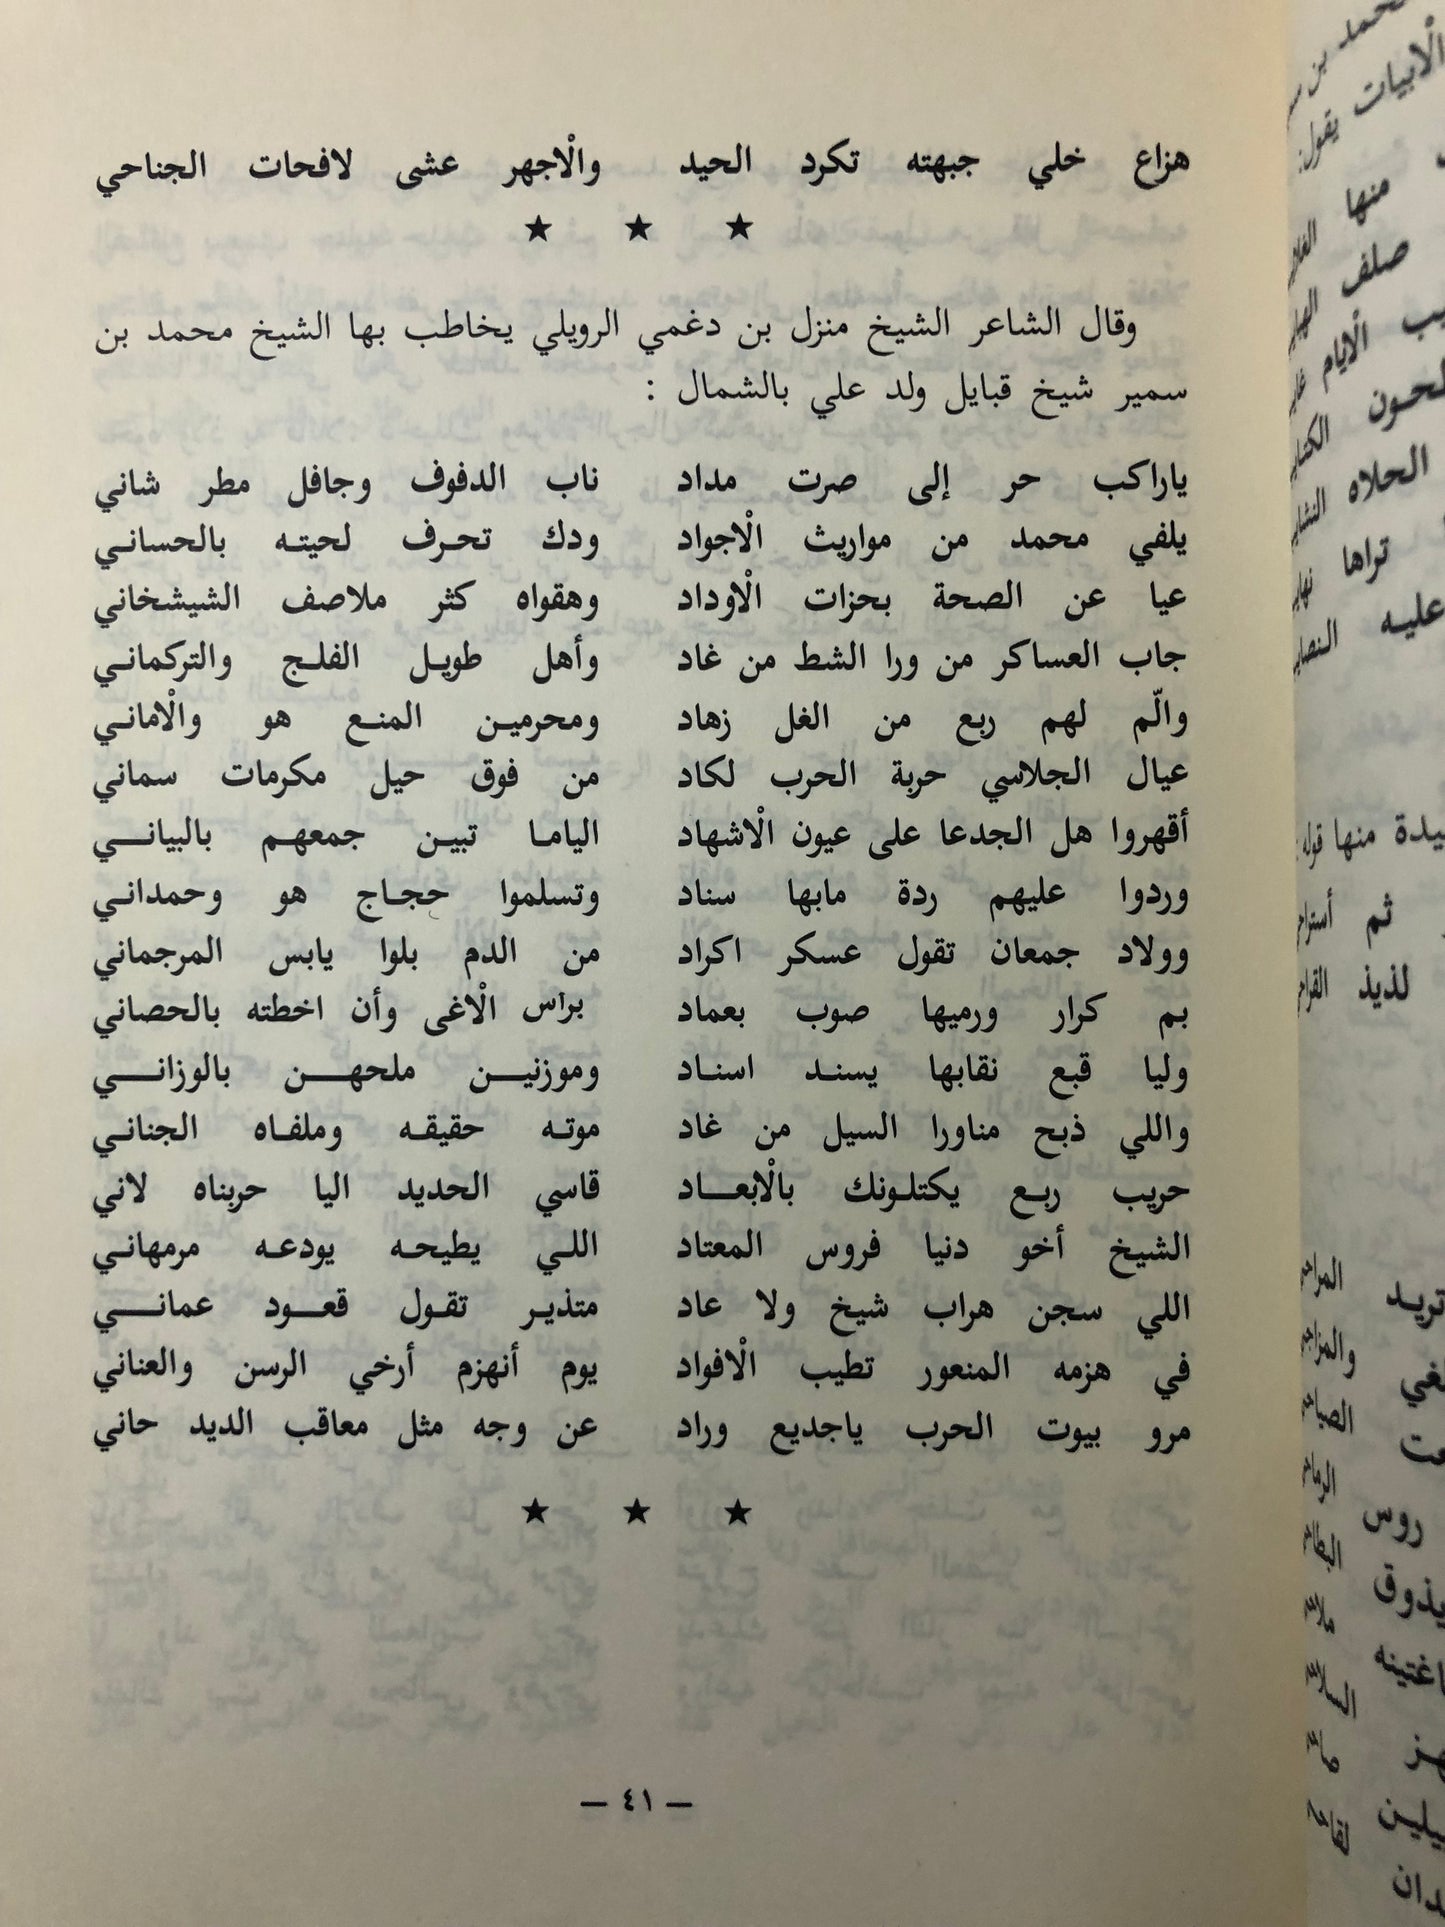 هزاع خلي جبهته تكرد الحيد والْاجهر عشى لافحات الجناحي
★ ★ ★
وقال الشاعر الشيخ منزل بن دغمي الرويلي يخاطب بها الشيخ محمد بن
سمير شيخ قبايل ولد علي بالشمال :
ياراكب حر إلى صرت مداد ناب الدفوف وجافل مطر شاني
يلفي محمد من مواريث الْاجواد ودك تحرف لحيته بالحساني
عيا عن الصحة بحزات الْاوداد وهقواه كثر ملاصف الشيشخاني
جاب العساكر من ورا الشط من غاد وأهل طويل الفلج والتركماني
والّم لهم ربع من الغل زهاد ومحرمين المنع هو والْاماني
عيال الجلاسي حربة الحرب لكاد من فوق حيل مكرمات سماني
أقهروا هل الجدعا على عيون الْاشهاد الياما تبين جمعهم بالبياني
وردوا عليهم ردة مابها سناد وتسلموا حجاج هو وحمداني
وولاد جمعان تقول عسكر اكراد من الدم بلوا يابس المرجماني
بم كرار ورميها صوب بعماد براس الْاغى وأن اخطته بالحصاني
وليا قبع نقابها يسند اسناد وموزنين ملحهن بالوزاني
واللي ذبح مناورا السيل من غاد موته حقيقه وملفاه الجناني
حريب ربع يكتلونك بالْابعاد قاسي الحديد اليا حربناه لاني
الشيخ أخو دنيا فروس المعتاد اللي يطيحه يودعه مرمهاني
اللي سجن هراب شيخ ولا عاد متذير تقول قعود عماني
في هزمه المنعور تطيب الْافواد يوم أنهزم أرخي الرسن والعناني
مرو بيوت الحرب ياجديع وراد عن وجه مثل معاقب الديد حاني
★ ★ ★
— ٤١ —
محمد بن
الْابيات يقول:
منها
صلف
الْايام
الحلاه
تراها
عليه
منها قوله
ثم
لذيذ
تريد
روس